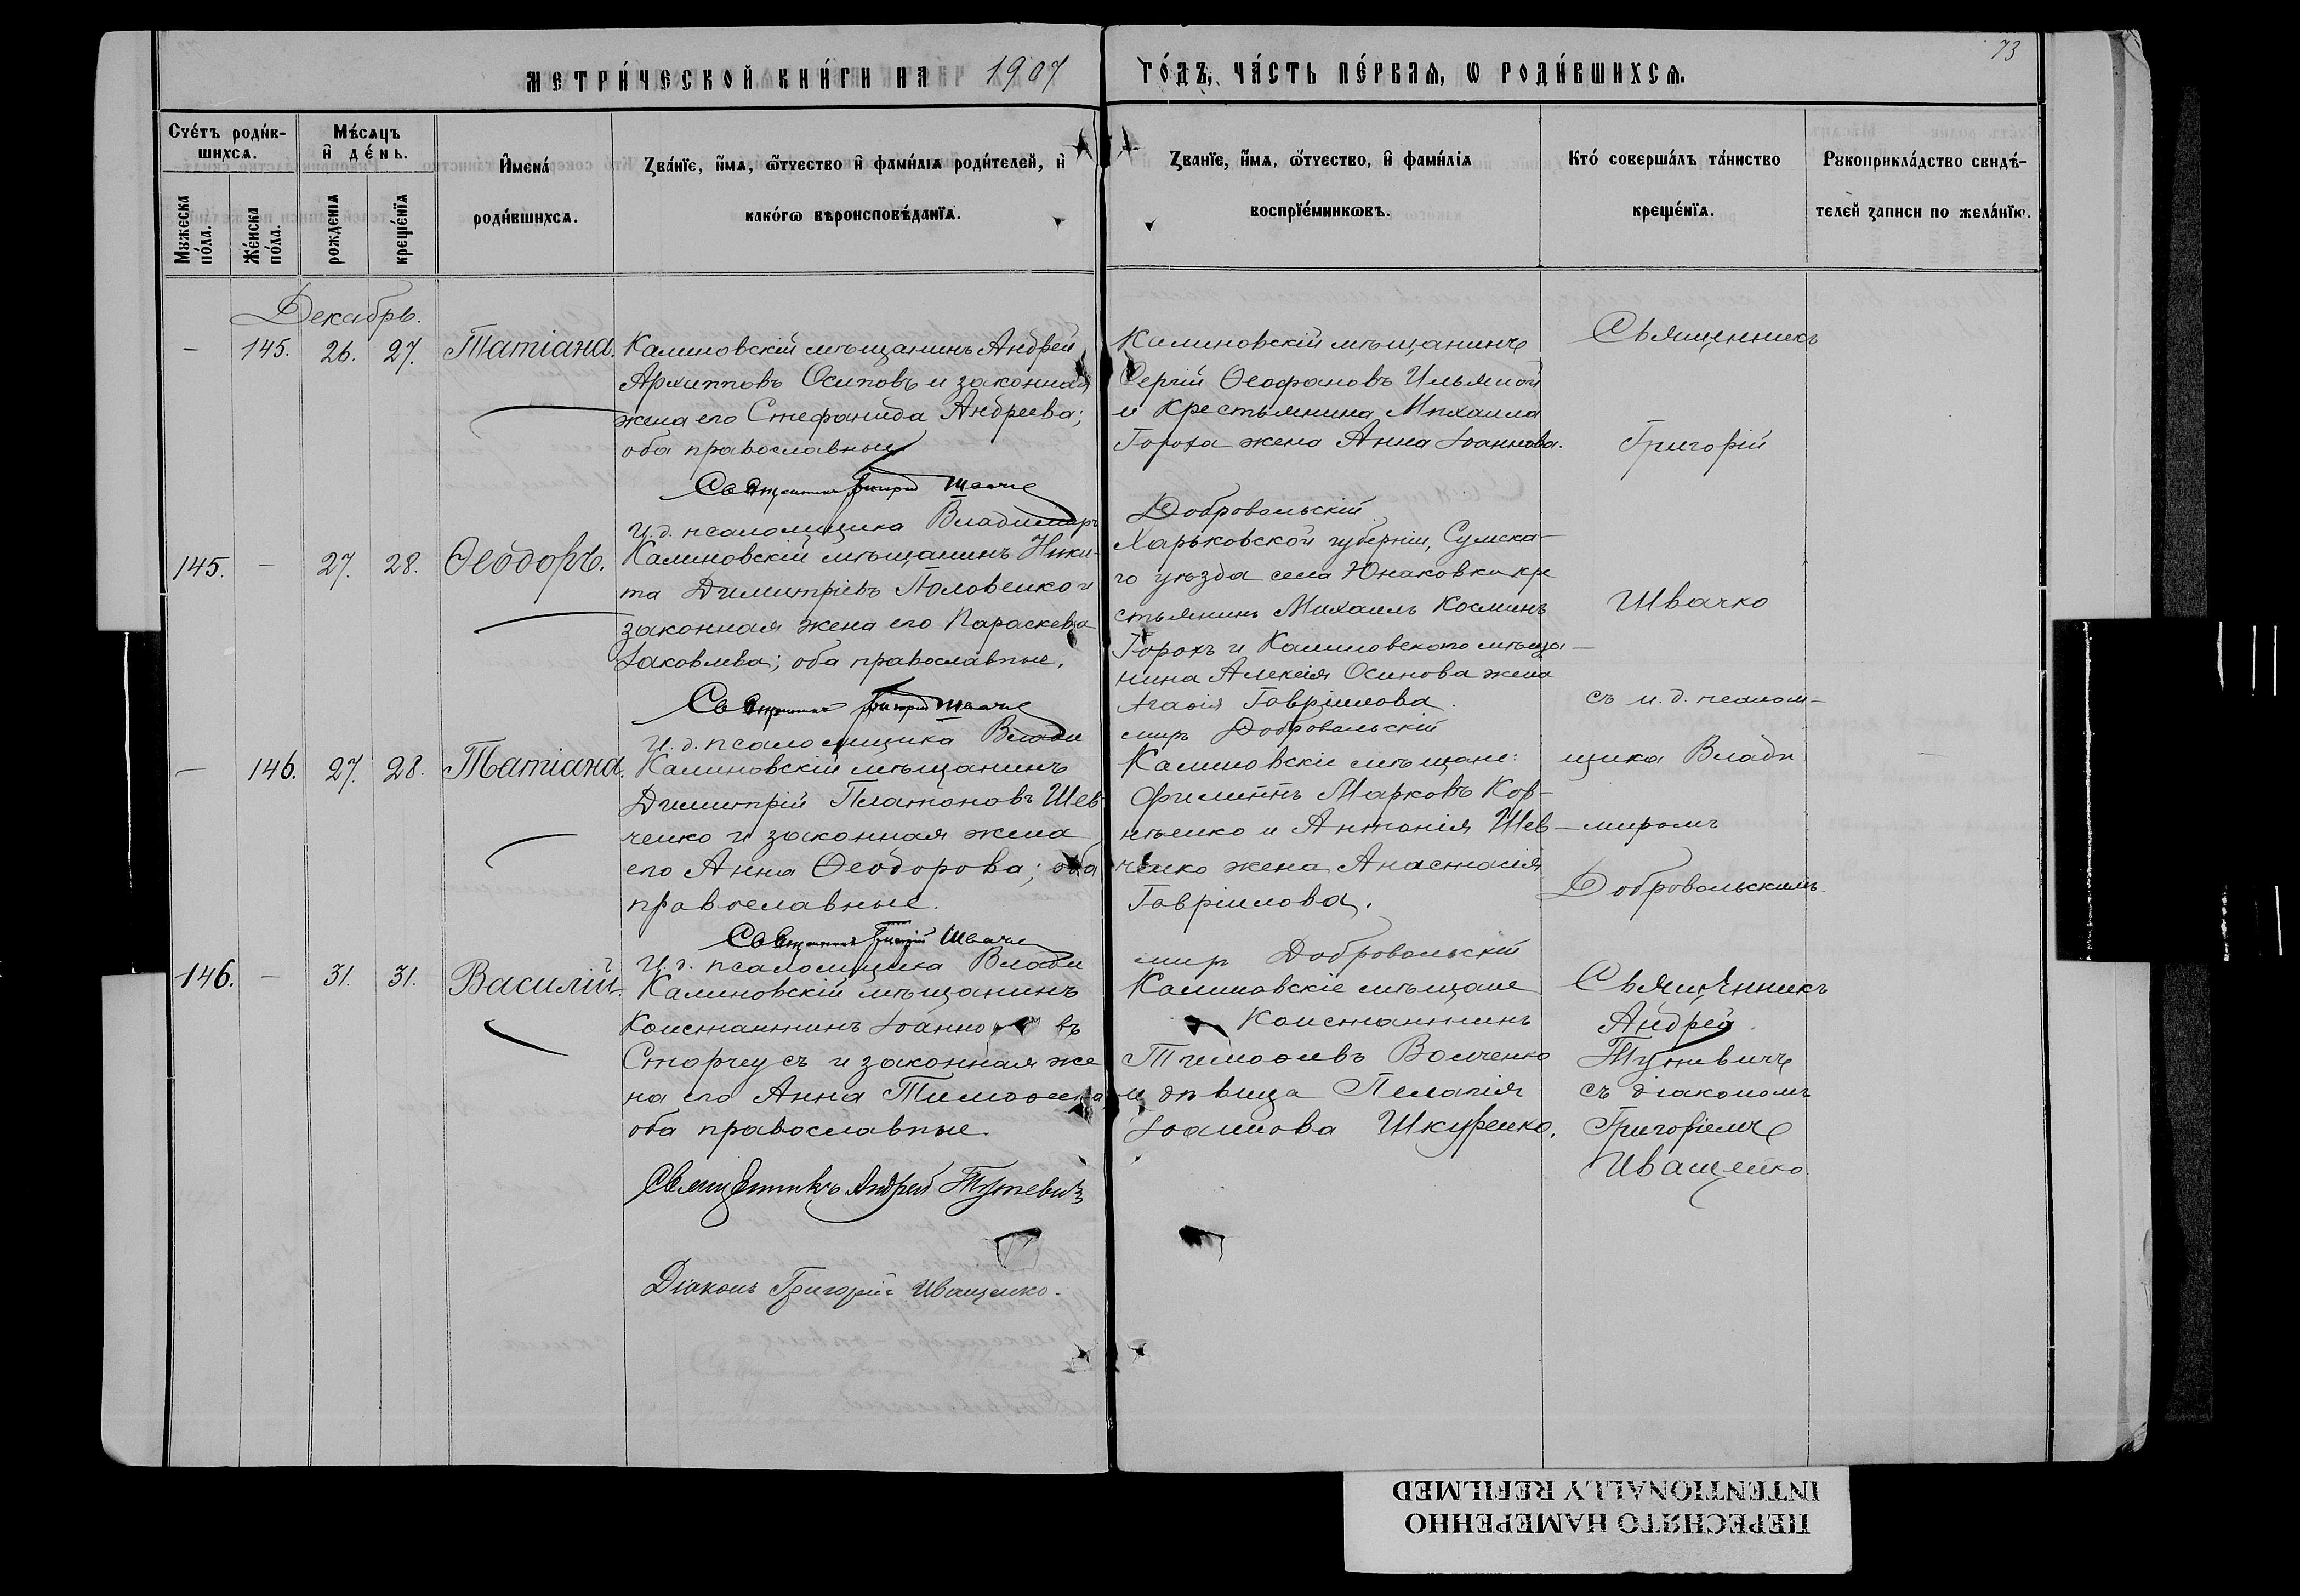 73
МЕТРИ́ЧЕСКОЙ КНИ́ГИ НА 1907 ГО́ДЪ, ЧА́СТЬ ПЕ́РВАѦ, Ѡ РОДИ́ВШИХСѦ.
Счéтъ роди́в-
шихсѧ.
Мꙋжеска
пóла.
Жéнска
пóла.
Мѣ́сѧцъ
и҆ дéнь.
рождéнїѧ
крещéнїѧ
И҆менá
роди́вшихсѧ.
Ꙁва́нїе, и҆́мѧ, ѻ҆́тчество и҆ фами́лїѧ роди́телей, и҆
како́гѡ вѣроисповѣ́данїѧ.
Ꙁва́нїе, и҆́мѧ, ѻ҆́тчество, и҆ фами́лїѧ
воспрїе́мникѡвъ.
Кто́ соверша́лъ та́инство
креще́нїѧ.
Рꙋкоприкла́дство свидѣ́-
телей ꙁаписи по жела́нїю.
Декабрь.
— 145. 26. 27. Татіана.
Калиновскій мѣщанинъ Андрей
Архипповъ Осиповъ и законная
жена его Стефанида Андреева;
оба православные.
Священникъ Григорій Швачко
И. д. псаломщика Владимиръ
Калиновскій мѣщанинъ
Сергій Ѳеофановъ
и крестьянина Михаила
Гороха жена Анна Іоаннова.
Добровольскій
Священникъ
Григорій
145. — 27. 28. Ѳеодоръ.
Калиновскій мѣщанинъ Ники-
та Димитріевъ Половенко и
законная жена его Параскева
Іаковлева; оба православные.
Священникъ Григорій Швачко
И. д. псаломщика Влади
Харьковской губерніи, Сумска-
го уѣзда села Юнаковки кре
стьянинъ Михаилъ Косминъ
Горохъ и Калиновскаго мѣща-
нина Алексія Осипова жена
Агаѳія Гавріилова.
миръ Добровольскій
Швачко
съ и. д. псалом-
— 146. 27. 28. Татіана.
Калиновскій мѣщанинъ
Димитрій Платоновъ Шев
ченко и законная жена
его Анна Ѳеодорова; оба
православные.
Священникъ Григорій Швачко
И. д. псаломщика Влади
Калиновскіе мѣщане:
Филиппъ Марковъ Кор-
нѣенко и Антонія Шев-
ченко жена Анастасія
Гавріилова.
миръ Добровольскій
щика Влади
миромъ
Добровольскимъ.
146. — 31. 31. Василій.
Калиновскій мѣщанинъ
Константинъ Іоанновъ
Сторчеусъ и законная же
на его Анна Тимоѳеева
оба православные.
Священникъ Андрей Тутевичъ
Діаконъ Григорій Иващенко.
Калиновскіе мѣщане
Константинъ
Тимоѳеевъ Волченко
и дѣвица Пелагія
Іоаннова Шкуренко.
Священникъ
Андрей
Тутевичъ
съ діакономъ
Григоріемъ
Иващенко.
ПЕРЕСНЯТО НАМЕРЕННО
INTENTIONALLY REFILMED